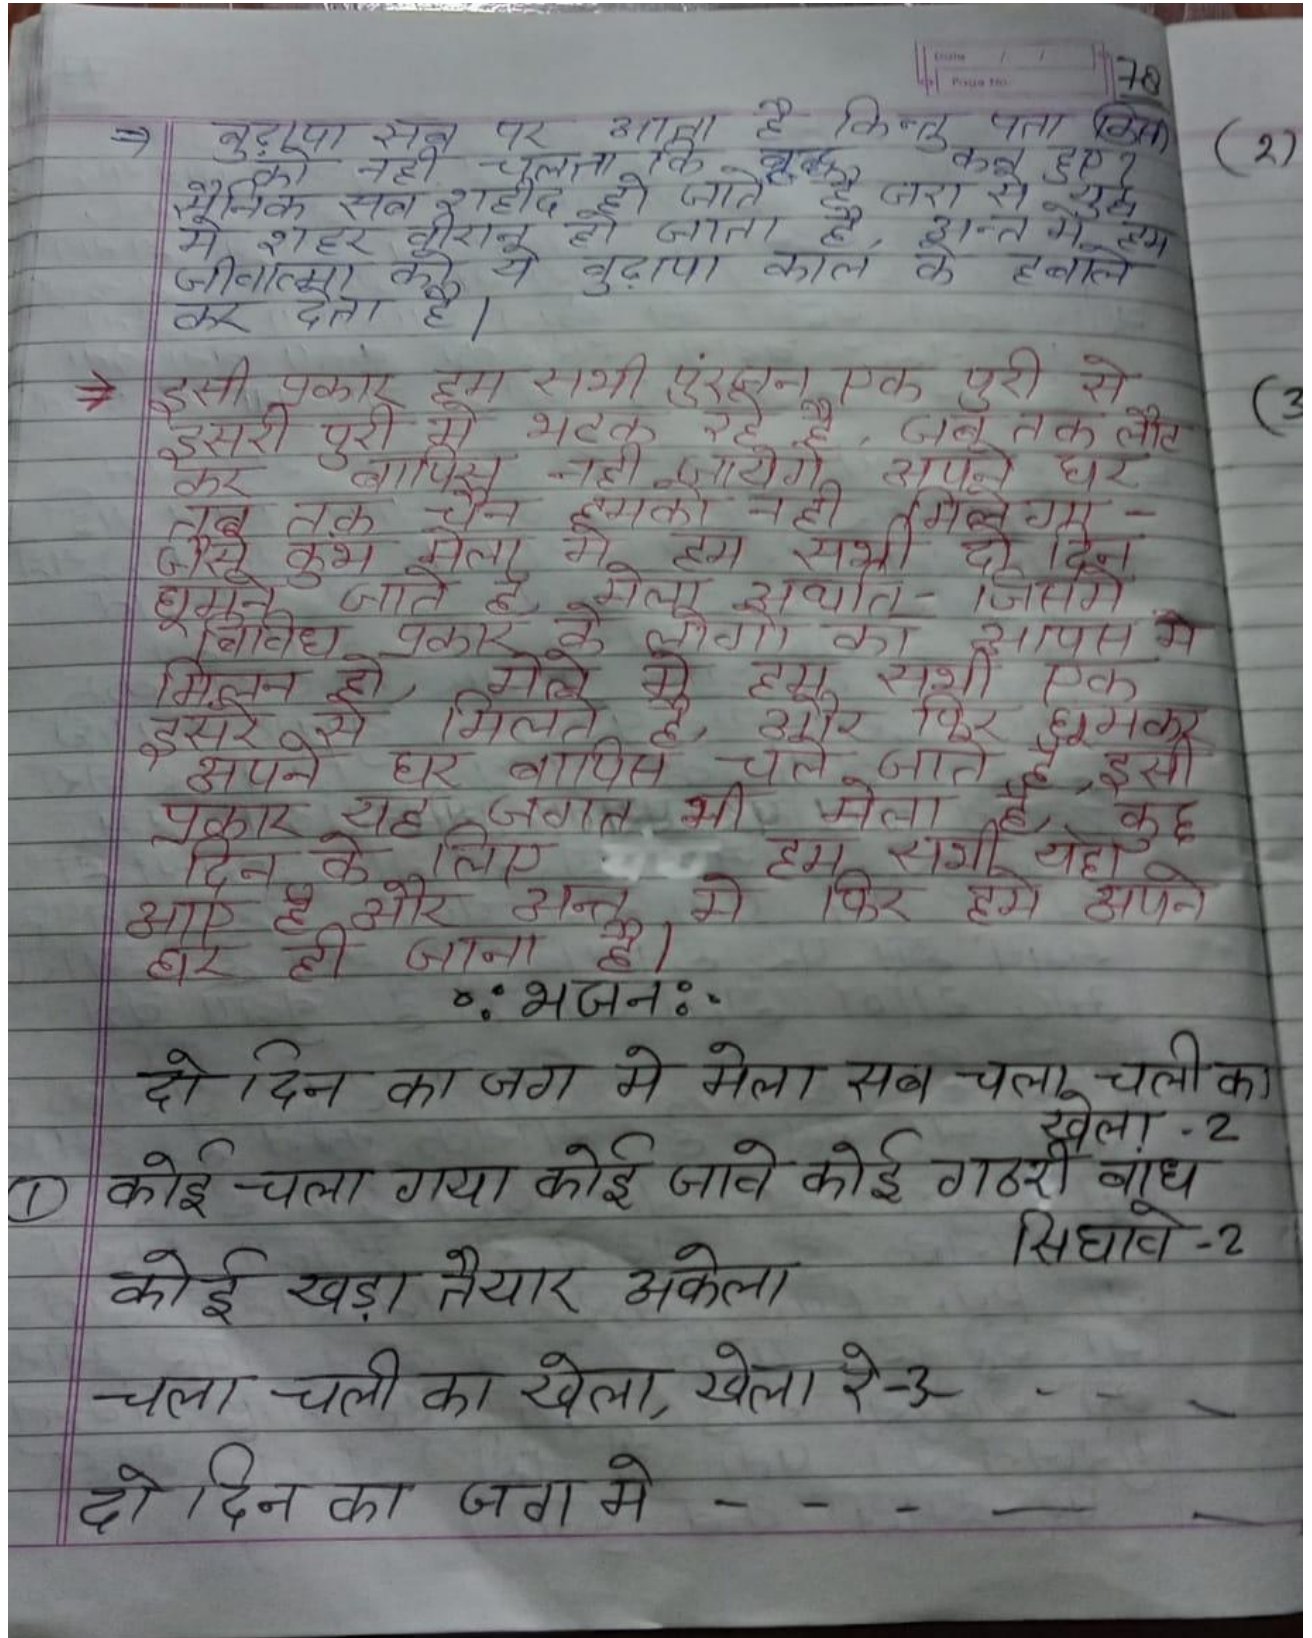 78
⇒ बुढ़ापा सब पर आता है किन्तु पता किस
को नही चलता कि कब हुए?
सैनिक सब शहीद हो जाते है जरा से युद्ध
मे शहर वीरान हो जाता है, अन्त मे हम
जीवात्मा को ये बुढ़ापा काल के हवाले
कर देता है।
⇒ इसी प्रकार हम सभी पुंरजन एक पुरी से
दुसरी पुरी मे भटक रहे है, जब तक लौट
कर बापिस नही जायेगे अपने घर
तब तक चैन हमको नही मिलेगा -
जैसे कुभ मेला मे हम सभी दो दिन
घूमने जाते है, मेला अर्थात- जिसमे
बिविध प्रकार के लोगो का आपस मे
मिलन हो, मेले मे हम सभी एक
दुसरे से मिलते है, और फिर घूमकर
अपने घर बापिस चले जाते है, इसी
प्रकार यह जगत भी मेला है, कुछ
दिन के लिए हम सभी यहा
आए है और अन्त मे फिर हमे अपने
घर ही जाना है।
भजन
दो दिन का जग मे मेला सब चला चली का
खेला - 2
① कोई चला गया कोई जावे कोई गठरी बांध
सिधावे - 2
कोई खड़ा तैयार अकेला
चला चली का खेला, खेला रे -3- - - -
दो दिन का जग मे - - - - -
(2)
(3